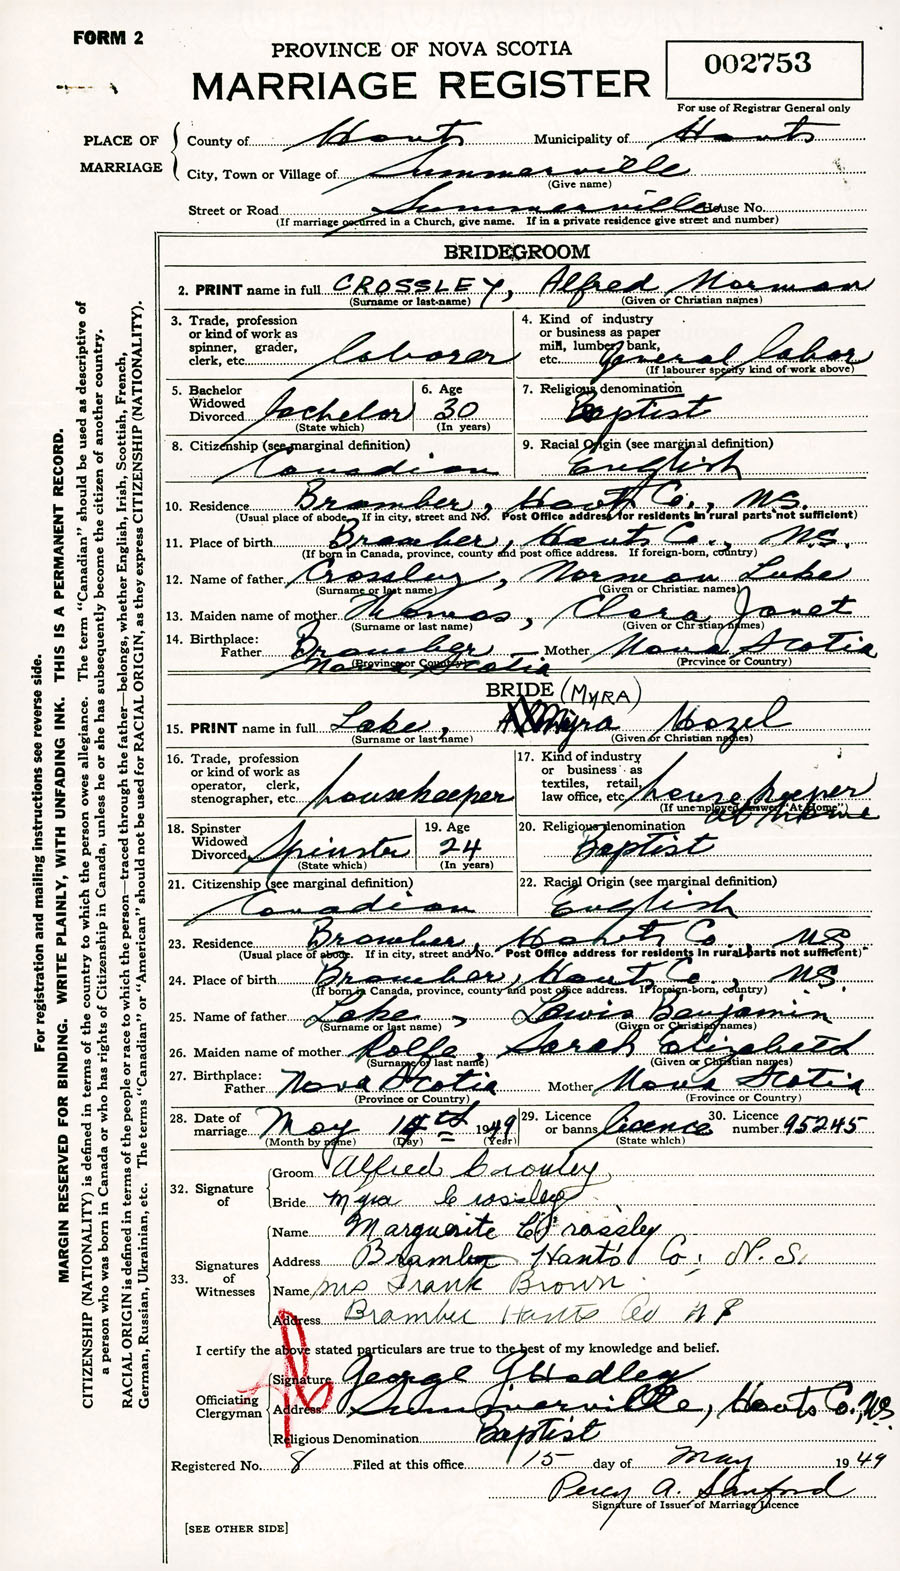 FORM 2
PROVINCE OF NOVA SCOTIA
MARRIAGE REGISTER
002753
For use of Registrar General only
PLACE OF MARRIAGE
County of Hants Municipality of Hants
City, Town or Village of Summerville
(Give name)
Street or Road Summerville House No.
(If marriage occurred in a Church, give name. If in a private residence give street and number)
BRIDEGROOM
2. PRINT name in full CROSSLEY, Alfred Norman
(Surname or last name) (Given or Christian names)
3. Trade, profession or kind of work as spinner, grader, clerk, etc. laborer
4. Kind of industry or business as paper mill, lumber, bank, etc. general labor
(If labourer specify kind of work above)
5. Bachelor Widowed Divorced bachelor
(State which)
6. Age 30
(In years)
7. Religious denomination Baptist
8. Citizenship (see marginal definition) Canadian
9. Racial Origin (see marginal definition) English
10. Residence Bramber, Hants Co., N.S.
(Usual place of abode. If in city, street and No. Post Office address for residents in rural parts not sufficient)
11. Place of birth Bramber, Hants Co., N.S.
(If born in Canada, province, county and post office address. If foreign-born, country)
12. Name of father Crossley, Norman Luke
(Surname or last name) (Given or Christian names)
13. Maiden name of mother Thomas, Clara Janet
(Surname or last name) (Given or Christian names)
14. Birthplace: Father Bramber Nova Scotia Mother Nova Scotia
(Province or Country) (Province or Country)
BRIDE (MYRA)
15. PRINT name in full Lake, Myra Hazel
(Surname or last name) (Given or Christian names)
16. Trade, profession or kind of work as operator, clerk, stenographer, etc. housekeeper
17. Kind of industry or business as textiles, retail, law office, etc. housekeeper at home
(If unemployed answer "At Home")
18. Spinster Widowed Divorced Spinster
(State which)
19. Age 24
(In years)
20. Religious denomination Baptist
21. Citizenship (see marginal definition) Canadian
22. Racial Origin (see marginal definition) English
23. Residence Bramber, Hants Co N.S.
(Usual place of abode. If in city, street and No. Post Office address for residents in rural parts not sufficient)
24. Place of birth Bramber, Hants Co., N.S.
(If born in Canada, province, county and post office address. If foreign-born, country)
25. Name of father Lake, Lewis Benjamin
(Surname or last name) (Given or Christian names)
26. Maiden name of mother Rolfe, Sarah Elizabeth
(Surname or last name) (Given or Christian names)
27. Birthplace: Father Nova Scotia Mother Nova Scotia
(Province or Country) (Province or Country)
28. Date of marriage May 14th 1949
(Month by name) (Day) (Year)
29. Licence or banns licence
(State which)
30. Licence number 95245
32. Signature of
Groom Alfred Crossley
Bride Myra Crossley
33. Signatures of Witnesses
Name Marguerite Crossley
Address Bramber Hants Co; N.S.
Name Mrs Frank Brown
Address Bramber Hants Co N S
I certify the above stated particulars are true to the best of my knowledge and belief.
Officiating Clergyman
Signature George G Hadley
Address Summerville, Hants Co., N.S.
Religious Denomination Baptist
Registered No. 8 Filed at this office 15 day of May 1949
Percy A. Sanford
Signature of Issuer of Marriage Licence
[SEE OTHER SIDE]
For registration and mailing instructions see reverse side.
MARGIN RESERVED FOR BINDING. WRITE PLAINLY, WITH UNFADING INK. THIS IS A PERMANENT RECORD.
CITIZENSHIP (NATIONALITY) is defined in terms of the country to which the person owes allegiance. The term "Canadian" should be used as descriptive of
a person who was born in Canada or who has rights of Citizenship in Canada, unless he or she has subsequently become the citizen of another country.
RACIAL ORIGIN is defined in terms of the people or race to which the person—traced through the father—belongs, whether English, Irish, Scottish, French,
German, Russian, Ukrainian, etc. The terms "Canadian" or "American" should not be used for RACIAL ORIGIN, as they express CITIZENSHIP (NATIONALITY).